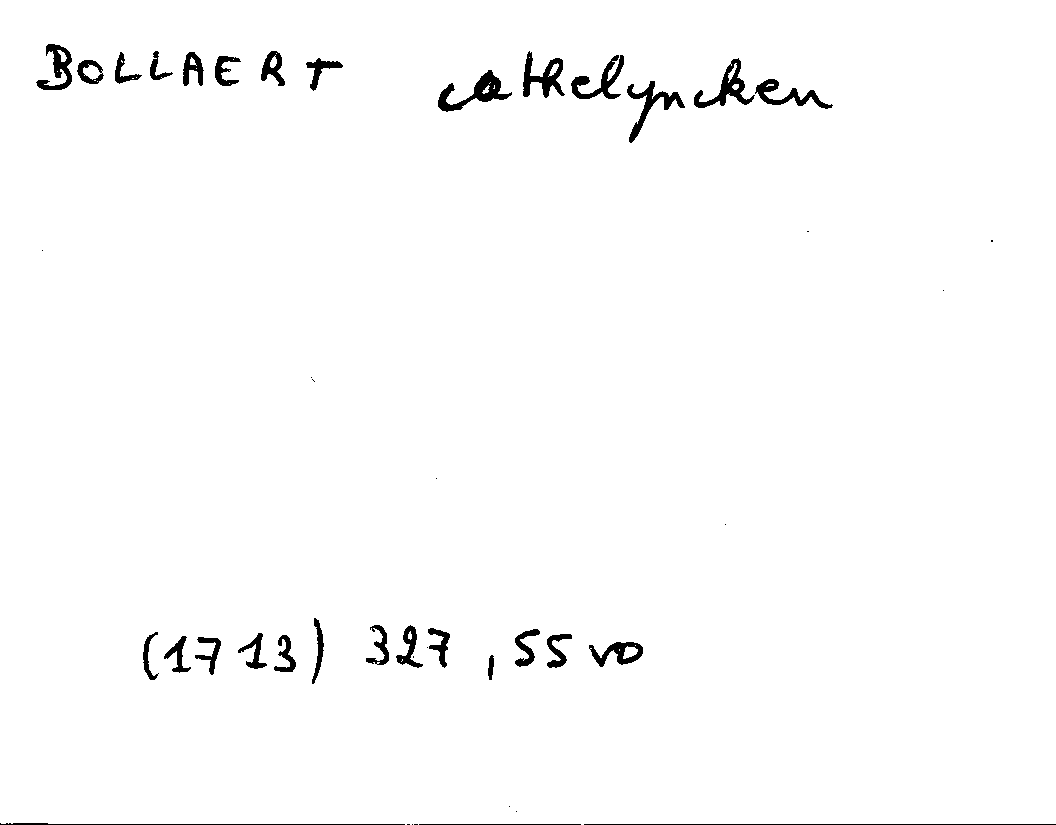 BOLLAERT cathelyncken
(1713) 327, 55 vo